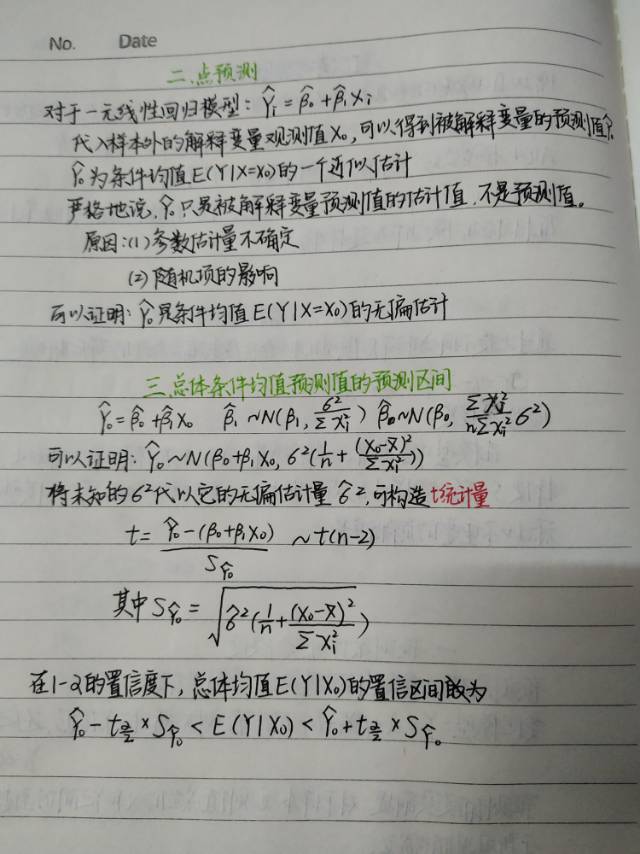 No. Date
二.点预测
对于一元线性回归模型: Ŷi = β̂0 + β̂1Xi
代入样本外的解释变量观测值X0, 可以得到被解释变量的预测值Ŷ0
Ŷ0为条件均值E(Y|X=X0)的一个近似估计
严格地说, Ŷ0只是被解释变量预测值的估计值, 不是预测值。
原因:(1)参数估计量不确定
(2)随机项的影响
可以证明: Ŷ0是条件均值E(Y|X=X0)的无偏估计
三.总体条件均值预测值的预测区间
Ŷ0 = β̂0 + β̂1X0 β̂1 ~ N(β1, σ²/Σxi²) β̂0 ~ N(β0, ΣXi²/nΣxi² σ²)
可以证明: Ŷ0 ~ N(β0+β1X0, σ²(1/n + (X0-X̄)²/Σxi²))
将未知的σ²代以它的无偏估计量σ̂², 可构造t统计量
t = Ŷ0-(β0+β1X0)/SŶ0 ~ t(n-2)
其中SŶ0 = √σ̂²(1/n + (X0-X̄)²/Σxi²)
在1-α的置信度下, 总体均值E(Y|X0)的置信区间为
Ŷ0 - tα/2 × SŶ0 < E(Y|X0) < Ŷ0 + tα/2 × SŶ0